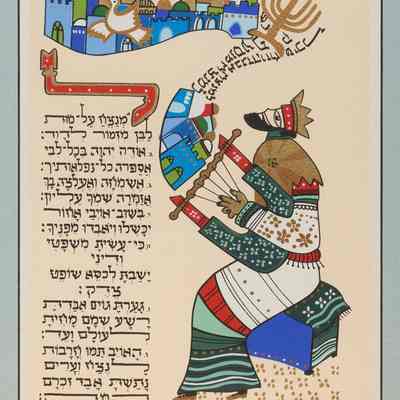 ל
מנצח על-מות
לבן מזמור לדוד:
אודה יהוה בכל-לבי
אספרה כל-נפלאותיך:
אשמחה ואעלצה בך
אזמרה שמך עליון:
בשוב-אויבי אחור
יכשלו ויאבדו מפניך:
כי-עשית משפטי
ודיני
ישבת לכסא שופט
צדק:
גערת גוים אבדת
רשע שמם מחית
לעולם ועד:
האויב תמו חרבות
לנצח וערים
נתשת אבד זכרם